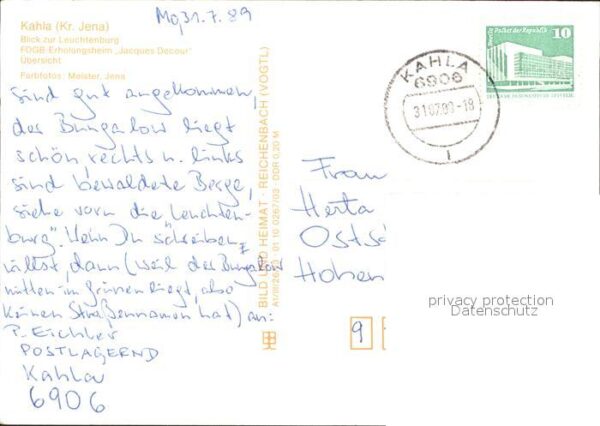 Mo, 31.7.89
Kahla (Kr. Jena)
Blick zur Leuchtenburg
FDGB-Erholungsheim "Jacques Decour"
Übersicht
Farbfotos: Meister, Jena
Sind gut angekommen,
der Bungalow liegt
schön, rechts u. links
sind bewaldete Berge,
siehe vorn die „Leuchten-
burg". Wenn Du schreiben
willst, dann (weil der Bungalow
mitten im Grünen liegt, also
keinen Straßennamen hat) an:
P. Eichler
POSTLAGERND
Kahla
6906
BILD UND HEIMAT · REICHENBACH (VOGTL)
A1/III/26/13 01 10 0267/03 DDR 0,20 M
KAHLA
6906
31.07.89-18
1
Palast der Republik
10
Frau
Herta
Hohen
9
privacy protection
Datenschutz